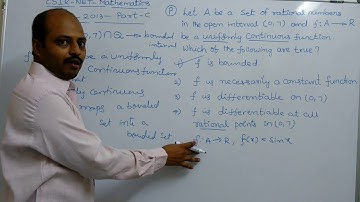 CSIR-NET-Mathematics
2013- Part-C
P Let A be a set of rational numbers
in the open interval (0,7) and f: A → R
be a uniformly continuous function
Which of the following are true?
1) f is bounded
2) f is necessarily a constant function
3) f is differentiable on (0,7)
4) f is differentiable at all
rational points on (0,7)
,7) ∩ Q → bounded
interval
uniformly
Continuous function
maps a bounded
Set into a
bounded set
f: A → R, f(x) = sin x